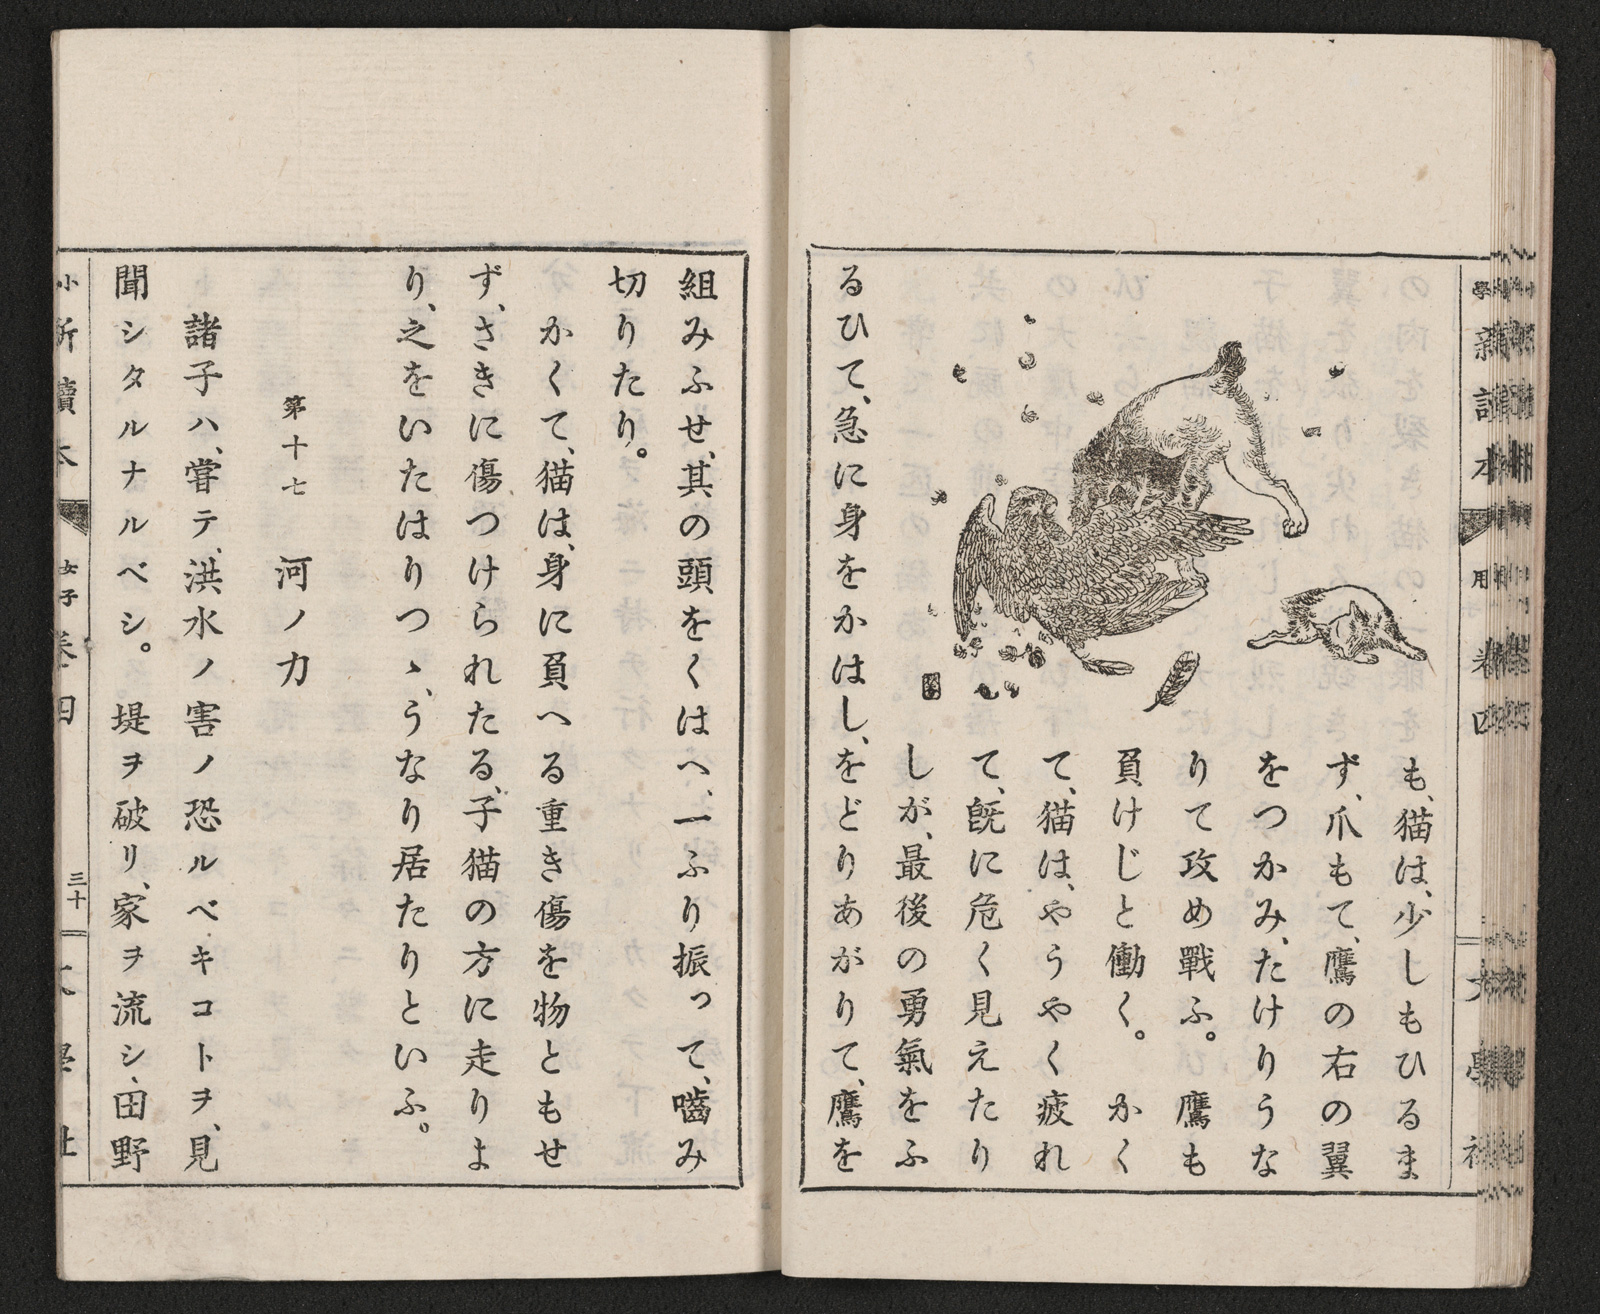 も、猫は、少しもひるま
ず、爪もて、鷹の右の翼
をつかみ、たけりうな
りて攻め戰ふ。鷹も
負けじと働く。かく
て、猫は、やうやく疲れ
て、既に危く見えたり
しが、最後の勇氣をふ
るひて、急に身をかはし、をどりあがりて、鷹を
組みふせ、其の頭をくはへ、一ふり振って、嚙み
切りたり。
かくて、猫は、身に負へる重き傷を物ともせ
ず、さきに傷つけられたる、子猫の方に走りよ
り、之をいたはりつゝ、うなり居たりといふ。
第十七 河ノ力
諸子ハ、嘗テ、洪水ノ害ノ恐ルベキコトヲ、見
聞シタルナルベシ。堤ヲ破リ、家ヲ流シ、田野
女子
三十